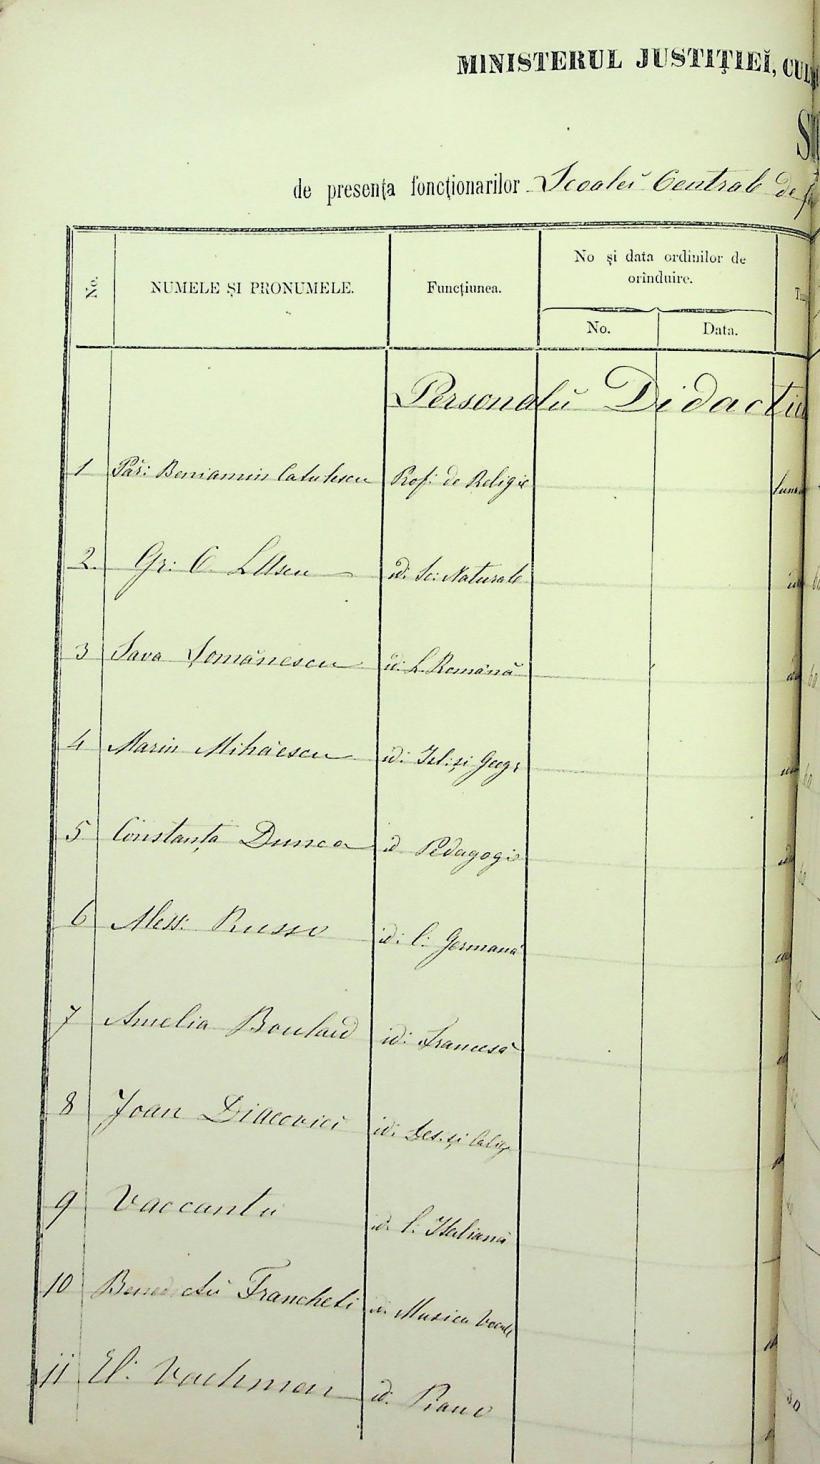 MINISTERUL JUSTIŢIEĬ, CUL
de presența foncționarilor Scoalei Centrale de
No.
NUMELE ȘI PRONUMELE.
Funcțiunea.
No și data ordinilor de
orînduire.
No.
Data.
Personalŭ Didactiv
1 Păr: Beniamin Prof: de Religie
2. Gr: C id: Sc: Naturale
3 Sava Șomănescu id: L. Română
4 Marin Mihăescu id: și Geogr
5 Constanța Dunca id Pedagogie
6 Aless: Russo id: l: Germană
7 Amelia Boulard id: Francesă
8 Joan Diacovici id: Des: și Calig
9 Vaccantu id: l: Italiană
10 Benedictŭ Francheti id: Musica Vocale
11 El: Vachman id: Piano